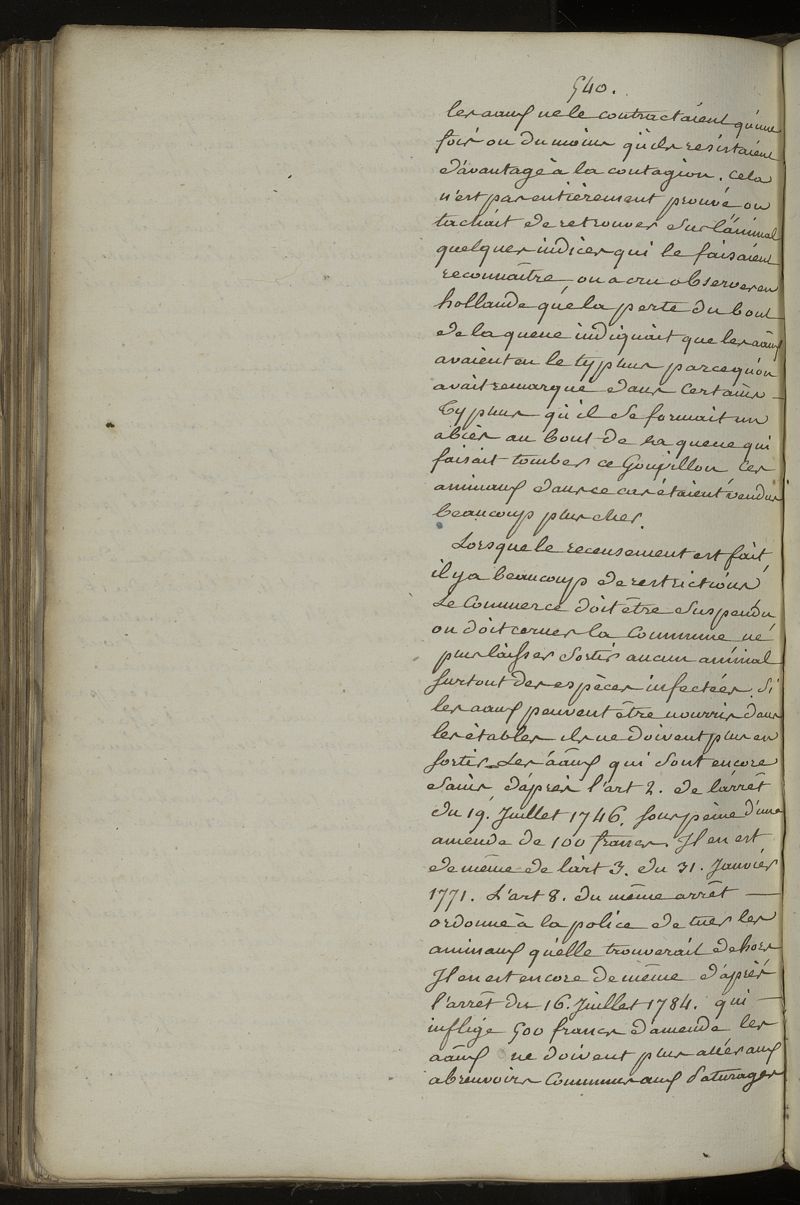 540.
les aaux ne le contractaient qu'une
fois ou du moins qu'ils resistaient
d'avantage à la contagion. Cela
n'est pas entièrement prouvé on
tachait de retrouver sur l'animal
quelques indices qui le faisaient
reconnaître on a cru observer en
hollande que la perte du bout
de la queue indiquait que les aaux
avaient eu le typhus parcequ'on
avait remarqué dans certains
Typhus qu'il se formait un
abcès au bout de la queue qui
faisait tomber ce Goupillon Ces
aminaux dans ce cas étaient vendus
beaucoup plus cher.
Lorsque le recensement est fait,
il y a beaucoup de restrictions
Le Commerce doit être suspendu
on doit cerner la Commune ne
plus laisser sortir aucun animal
surtout des espèces infectées. Si
les aaux peuvent être nourris dans
les étables ils ne doivent plus en
sortir. Les aaux qui sont encore
sains d'après l'art 2. de l'arrêt
du 19. Juillet 1746. sous peine d'une
amende de 100 francs. Il en est
de même de l'art 3. du 31. Janvier
1771. L'art 8. du même arrêt —
ordonne à la police de tuer les
aminaux qu'elle trouverait dehors
Il en est encore de même d'après
l'arrêt du 16. Juillet 1784. qui —
inflige 500 francs d'amende les
aaux ne doivent plus aller aux
abreuvoirs Communs aux Paturages